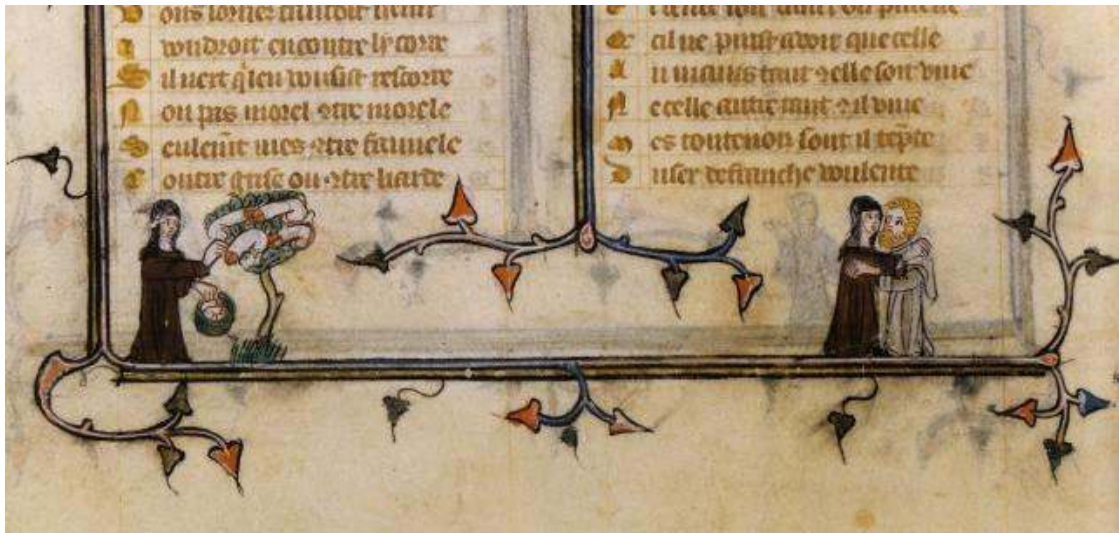 I voudroit encontre ly corre
S il nert qi len vousist rescorre
N on pas morel ꝯtre morele
S eulemt mes ꝯtre fauuele
C ontre grise ou ꝯtre liarde
& cil ne puist auoir que celle
A u mains tant ꝯ elle soit viue
N e celle autre tant ꝯ il viue
M es toutenois sont il tẽpte
D user de franche voulente